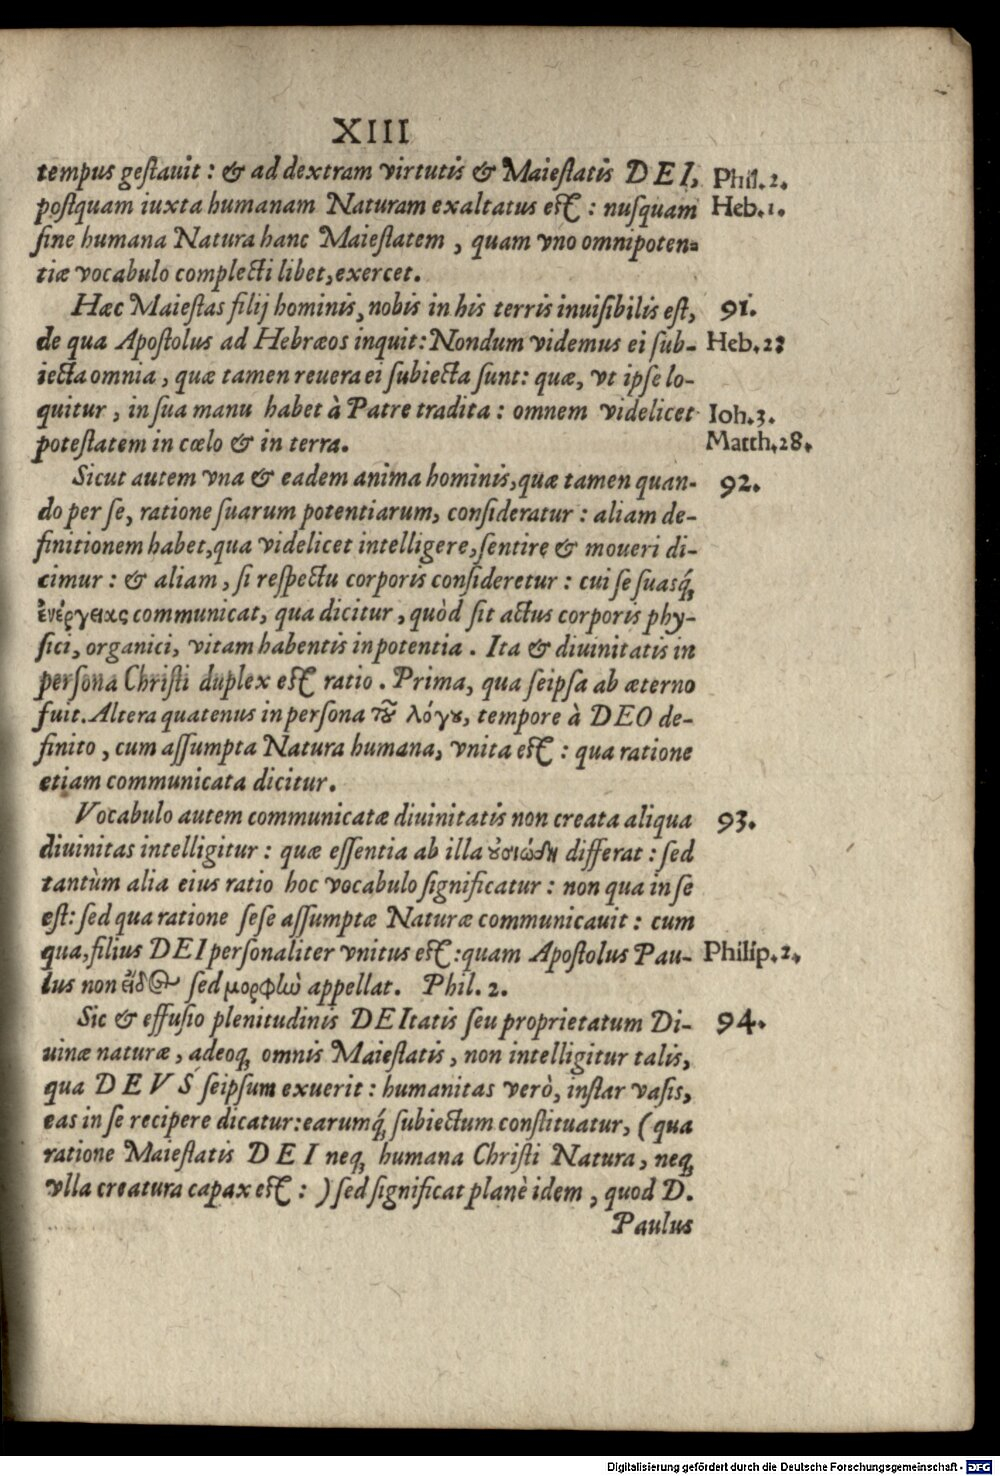 XIII
tempus geſtauit : & ad dextram virtutis & Maieſtatis DEI, Phil. 2.
poſtquam iuxta humanam Naturam exaltatus eſt : nuſquam Heb. 1.
ſine humana Natura hanc Maieſtatem , quam vno omnipoten=
tiæ vocabulo complecti libet, exercet.
Hæc Maieſtas filij hominis, nobis in his terris inuiſibilis eſt, 91.
de qua Apoſtolus ad Hebræos inquit: Nondum videmus ei ſub- Heb. 2:
iecta omnia , quæ tamen reuera ei ſubiecta ſunt: quæ, vt ipſe lo-
quitur , in ſua manu habet à Patre tradita : omnem videlicet Ioh. 3.
poteſtatem in cœlo & in terra. Matth. 28.
Sicut autem vna & eadem anima hominis, quæ tamen quan- 92.
do per ſe, ratione ſuarum potentiarum, conſideratur : aliam de-
finitionem habet, qua videlicet intelligere, ſentire & moueri di-
cimur : & aliam , ſi reſpectu corporis conſideretur : cui ſe ſuasq́;
ἐνέργειας communicat, qua dicitur , quòd ſit actus corporis phy-
ſici, organici, vitam habentis in potentia . Ita & diuinitatis in
perſona Chriſti duplex eſt ratio . Prima, qua ſeipſa ab æterno
fuit. Altera quatenus in perſona τȣ͂ λόγȣ, tempore à DEO de-
finito , cum aſſumpta Natura humana, vnita eſt : qua ratione
etiam communicata dicitur.
Vocabulo autem communicatæ diuinitatis non creata aliqua 93.
diuinitas intelligitur : quæ eſſentia ab illa ȣ̓σιώδη differat : ſed
tantùm alia eius ratio hoc vocabulo ſignificatur : non qua in ſe
eſt: ſed qua ratione ſeſe aſſumptæ Naturæ communicauit : cum
qua, filius DEI perſonaliter vnitus eſt : quam Apoſtolus Pau- Philip. 2.
lus non εἶδ۞ ſed μορφὼ appellat. Phil. 2.
Sic & effuſio plenitudinis DEItatis ſeu proprietatum Di- 94.
uinæ naturæ , adeoq; omnis Maieſtatis , non intelligitur talis,
qua DEVS ſeipſum exuerit : humanitas verò, inſtar vaſis,
eas in ſe recipere dicatur: earumq́; ſubiectum conſtituatur, ( qua
ratione Maieſtatis DEI neq; humana Chriſti Natura, neq;
vlla creatura capax eſt : ) ſed ſignificat planè idem , quod D.
Paulus
Digitalisierung gefördert durch die Deutsche Forschungsgemeinschaft - DFG